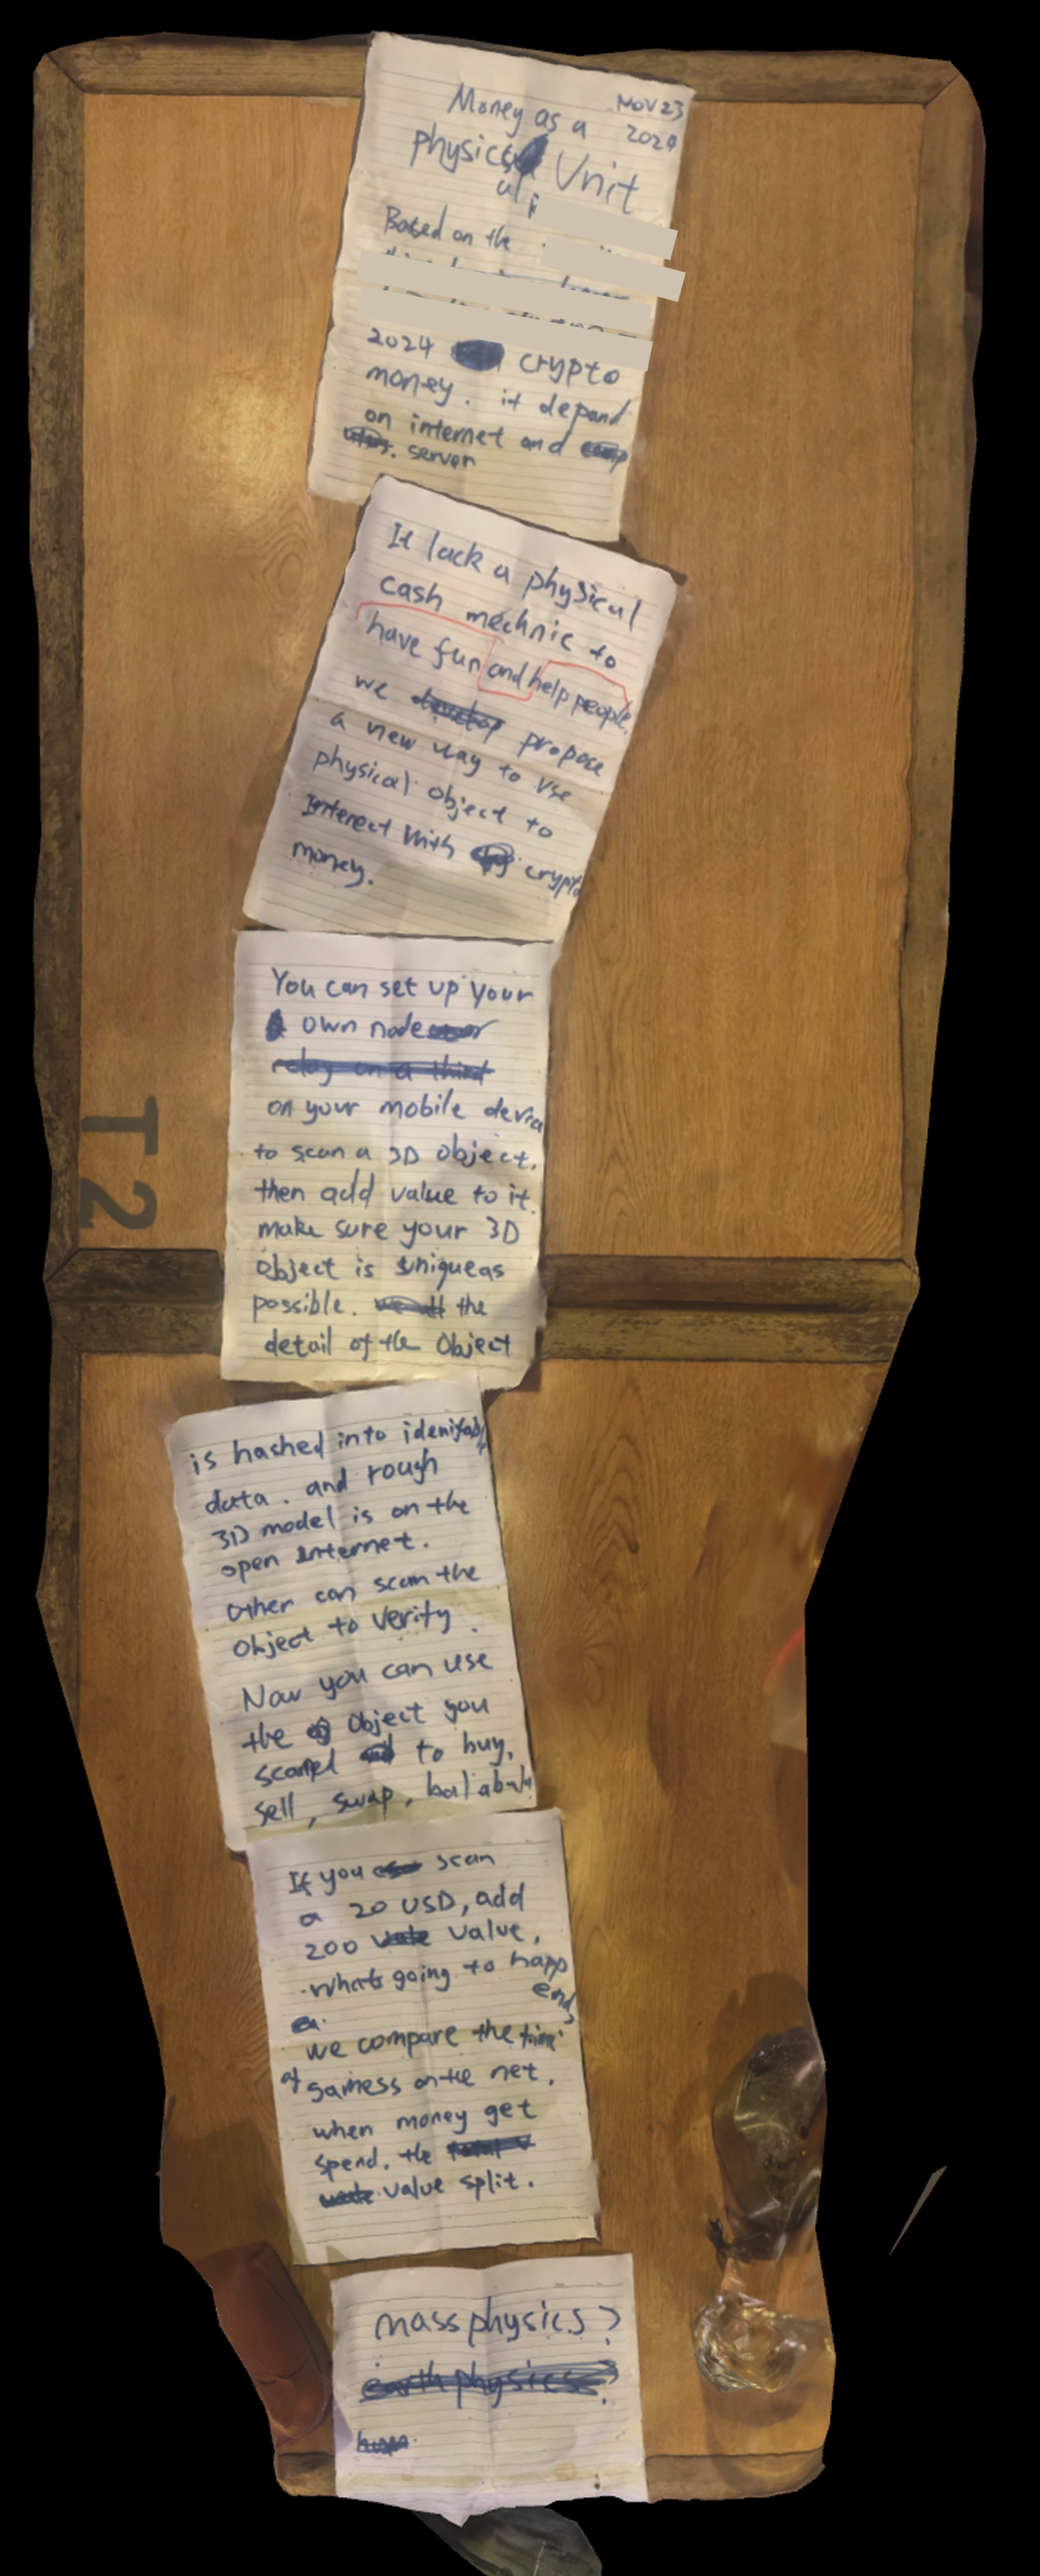 Nov 23
2024
Money as a
physical Unit
Based on the
2024 crypto
money. it depand
on internet and
server
It lack a physical
cash mechnic to
have fun and help people.
we propose
a new way to use
physical object to
Interect with crypto
money.
You can set up your
own node
relay on a third
on your mobile device
to scan a 3D object.
then add value to it.
make sure your 3D
Object is uniqueas
possible. the
detail of the Object
is hashed into
data. and rough
3D model is on the
open internet.
other can scan the
Object to verify.
Now you can use
the Object you
scaned to buy,
sell, swap, balabala
If you scan
a 20 USD, add
200 value,
What's going to happ
end,
we compare the time
of samness on the net.
when money get
spend. the
value split.
T2
mass physics?
earth physics?